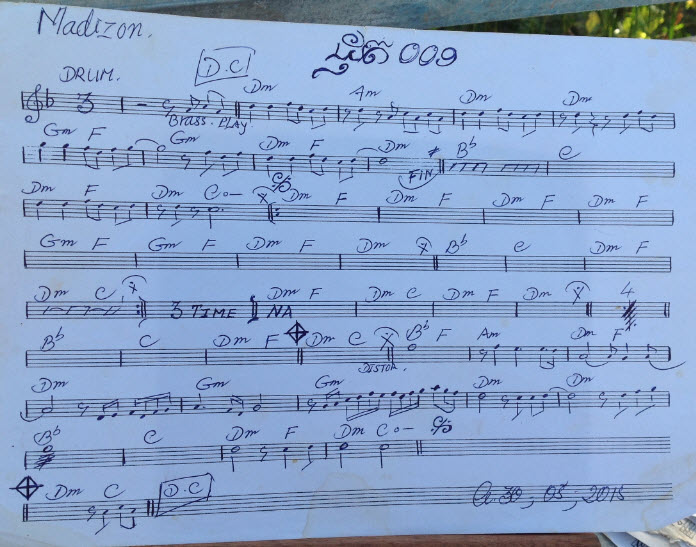 Madizon.
D.C 009
DRUM.
Dm Am Dm Dm
3
Brass. PLAY
Gm F Gm Dm F Dm Bb C
FIN
Dm F Dm C Dm F Dm F Dm F Dm F
Gm F Gm F Dm F Dm Bb C Dm F
Dm C Dm F Dm C Dm F Dm 4
3 TIME NA
Bb C Dm F Dm C Bb F Am Dm F
DISTOR.
Dm Gm Gm Dm Dm
Bb C Dm F Dm C
Dm C D.C 30, 05, 2015